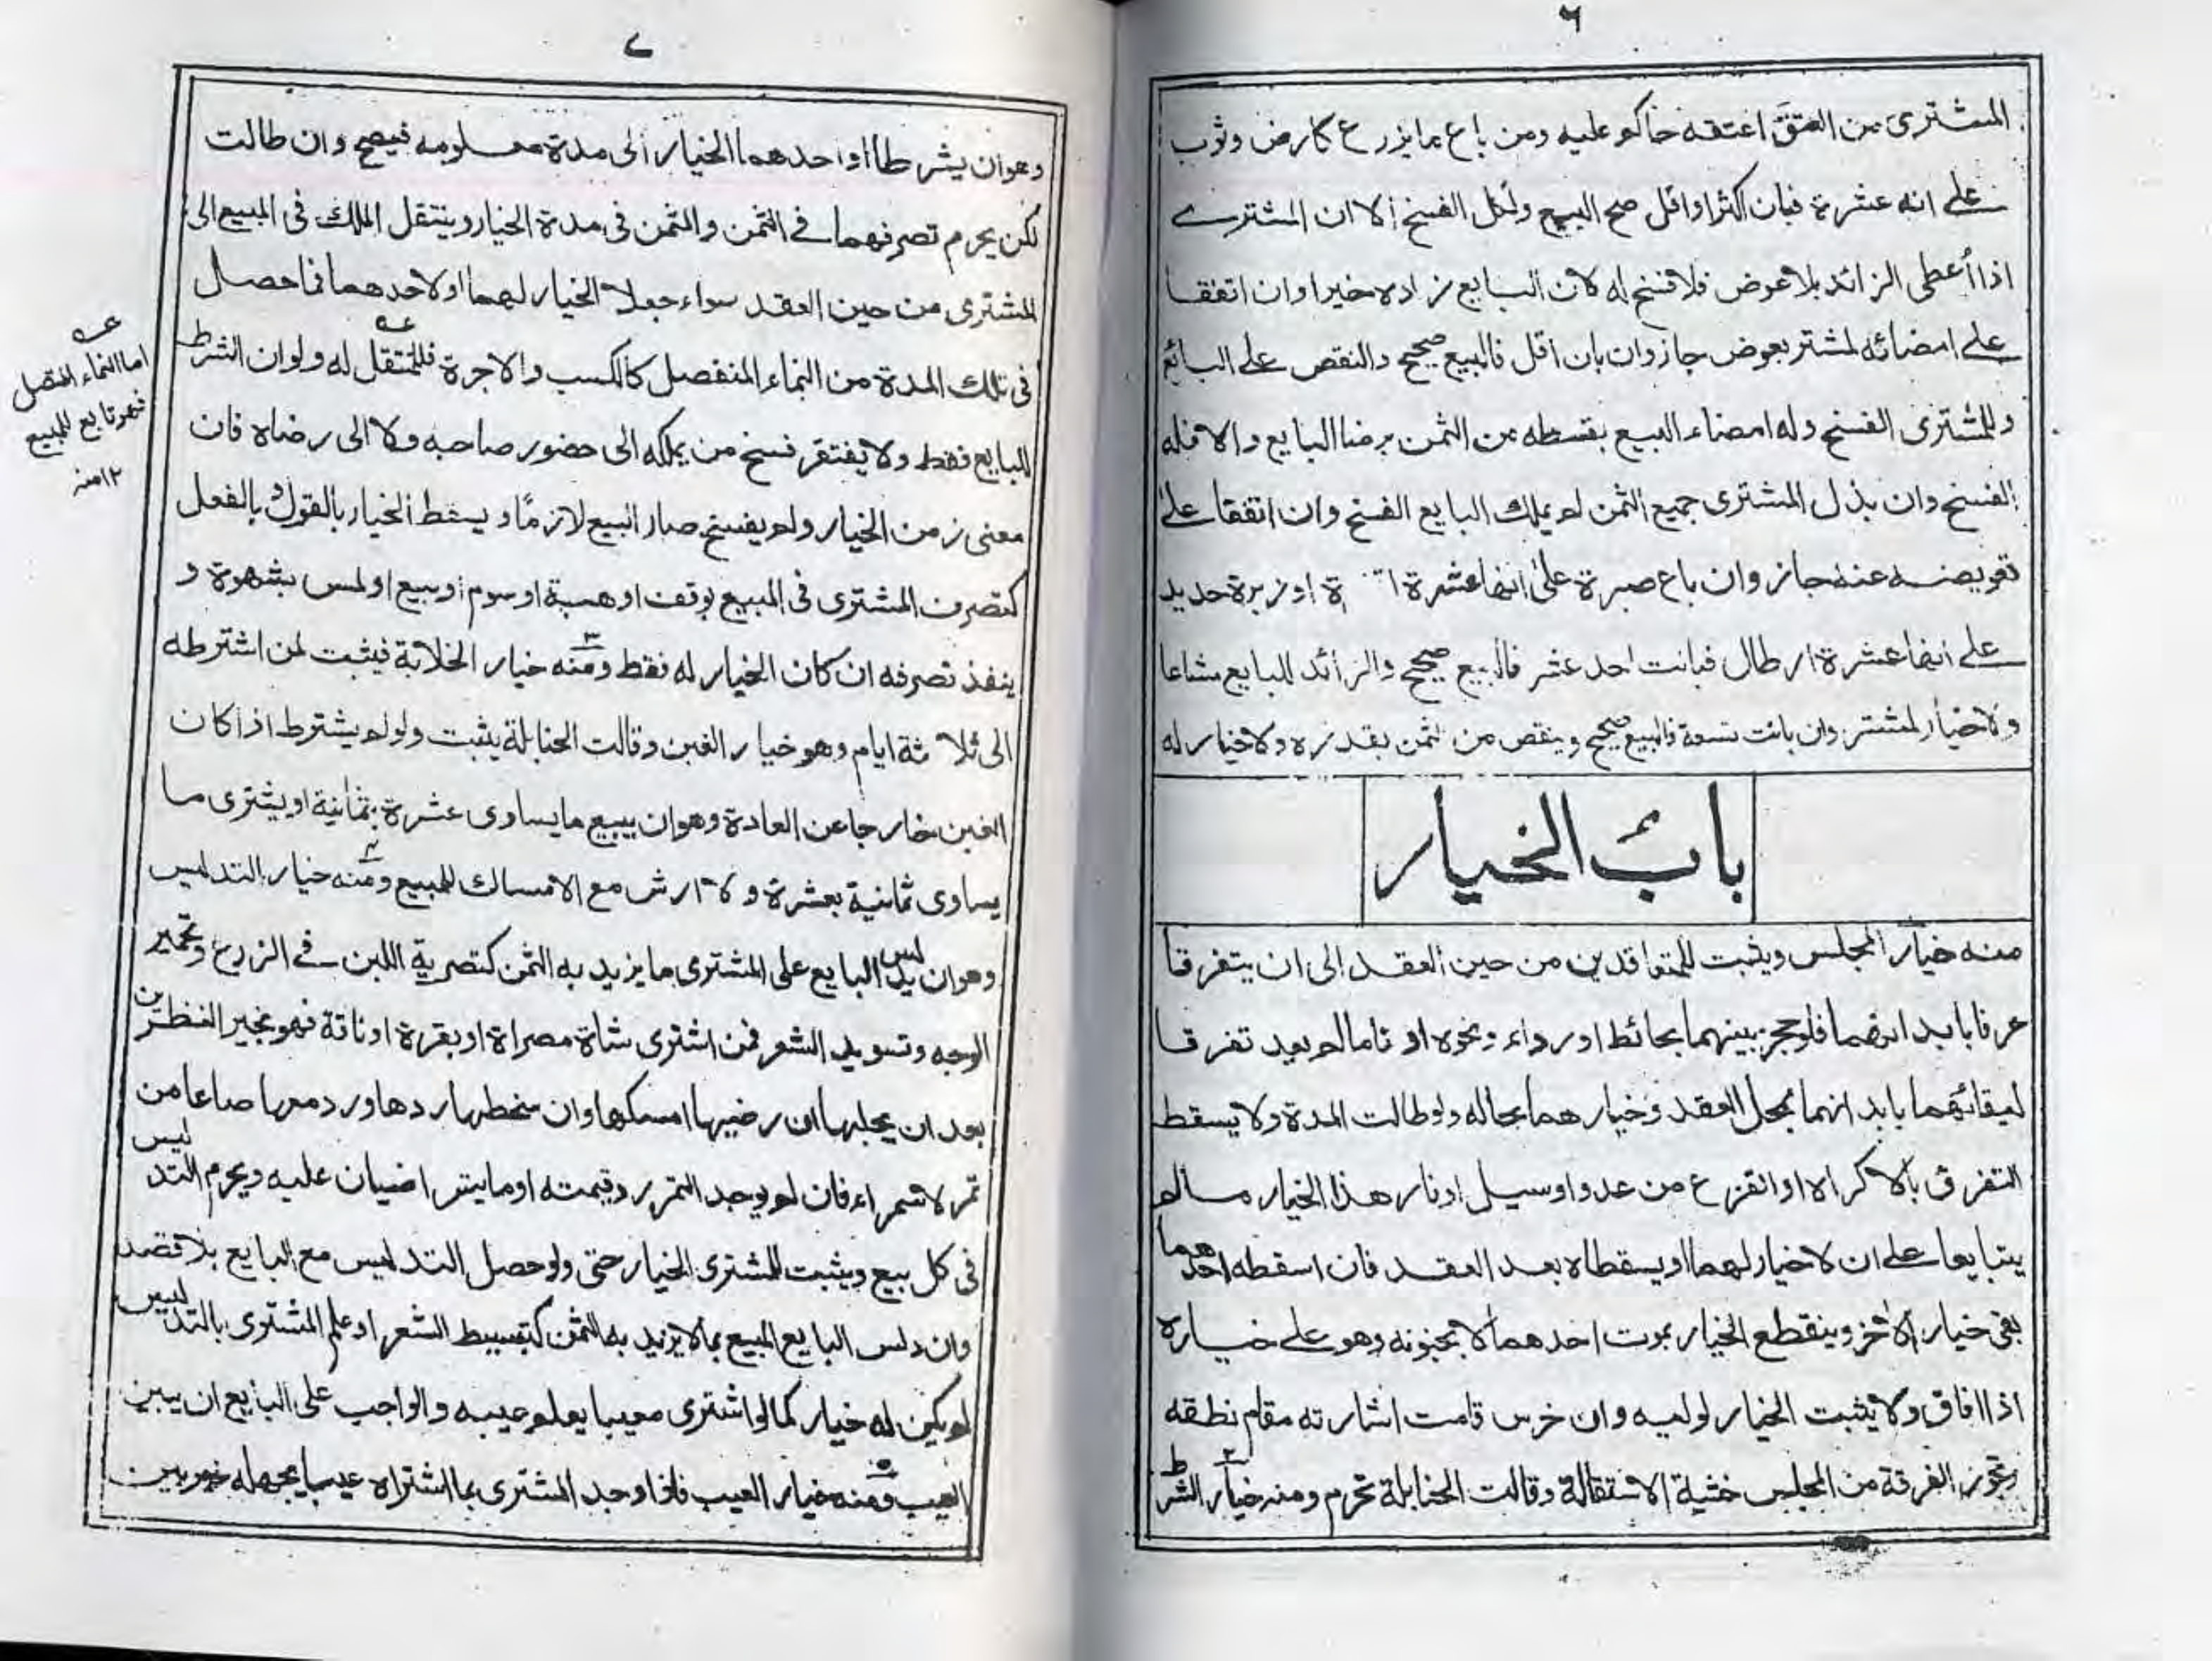 ٦
المشترى من العتق اعتقه حاكم عليه ومن باع ما يزرع كارض وثوب
على انه عشرة فبان اكثر او اقل صح البيع ولكل الفسخ الا ان المشترى
اذا أعطى الزائد بلا عوض فلا فسخ له لان البايع زاده خيرا وان اتفقا
على امضائه لمشتر بعوض جاز وان بان اقل فالبيع صحيح والنقص على البائع
وللمشترى الفسخ وله امضاء البيع بقسطه من الثمن برضا البايع والا فله
الفسخ وان بذل المشترى جميع الثمن لم يملك البايع الفسخ وان اتفقا على
تعويضه عنه جاز وان باع صبرة على انها عشرة او زبرة حديد
على انها عشرة ارطال فبانت احد عشر فالبيع صحيح والزائد للبايع مشاعا
ولا خيار لمشتر وان بانت تسعة فالبيع صحيح وينقص من الثمن بقدره ولا خيار له
باب الخيار
منه خيار المجلس ويثبت للمتعاقدين من حين العقد الى ان يتفرقا
عرفا بابدانهما فلو حجز بينهما بحائط او رداء ونحوه او ناما لم يعد تفرقا
لبقائهما بابدانهما بمحل العقد وخيارهما بحاله ولو طالت المدة ولا يسقط
التفرق بالاكراه او الفزع من عدو او سيل او نار هذا الخيار ما لم
يتبايعا على ان لا خيار لهما او يسقطاه بعد العقد فان اسقطه احدهما
بقى خيار الاخر وينقطع الخيار بموت احدهما لا بجنونه وهو على خياره
اذا افاق ولا يثبت الخيار لوليه وان خرس قامت اشارته مقام نطقه
وتجوز الفرقة من المجلس خشية الاستقالة وقالت الحنابلة تحرم ومنه ٢ خيار الشرط
٧
وهو ان يشرطا او احدهما الخيار الى مدة معلومه فيصح وان طالت
لكن يحرم تصرفهما فى الثمن والثمن فى مدة الخيار وينتقل الملك فى المبيع الى
المشترى من حين العقد سواء جعلا الخيار لهما او لاحدهما فما حصل
فى تلك المدة من النماء المنفصل كالكسب والاجرة فللمنتقل له ولو ان الشرط
للبايع فقط ولا يفتقر فسخ من يملكه الى حضور صاحبه ولا الى رضاه فان
مضى زمن الخيار ولم يفسخ صار البيع لازما ويسقط الخيار بالقول وبالفعل
كتصرف المشترى فى المبيع بوقف او هبة او سوم او بيع او لمس بشهوة و
ينفذ تصرفه ان كان الخيار له فقط ومنه ٣ خيار الخلابة فيثبت لمن اشترطه
الى ثلاثة ايام وهو خيار الغبن وقالت الحنابلة يثبت ولو لم يشترط اذا كان
الغبن خارجا عن العادة وهو ان يبيع ما يساوى عشرة بثمانية او يشترى ما
يساوى ثمانية بعشرة ولا ارش مع الامساك للمبيع ومنه ٤ خيار التدليس
وهو ان يدلس البايع على المشترى ما يزيد به الثمن كتصرية اللبن فى الزرع وتحمير
الوجه وتسويد الشعر فمن اشترى شاة مصراة او بقرة او ناقة فهو بخير النظرين
بعد ان يحلبها ان رضيها امسكها وان سخطها ردها ورد معها صاعا من
تمر لا سمراء فان لم يوجد التمر رد قيمته او ما يتراضيان عليه ويحرم التدليس
فى كل بيع ويثبت للمشترى الخيار حتى ولو حصل التدليس مع البايع بلا قصد
وان دلس البايع المبيع بما لا يزيد به الثمن كتبسيط الشعر او علم المشترى بالتدليس
لم يكن له خيار كما لو اشترى معيبا يعلم عيبه والواجب على البايع ان يبين
العيب ومنه ٥ خيار العيب فاذا وجد المشترى بما اشتراه عيبا يجهله
اما النماء المتصل
فهو تابع للمبيع
١٢ منه